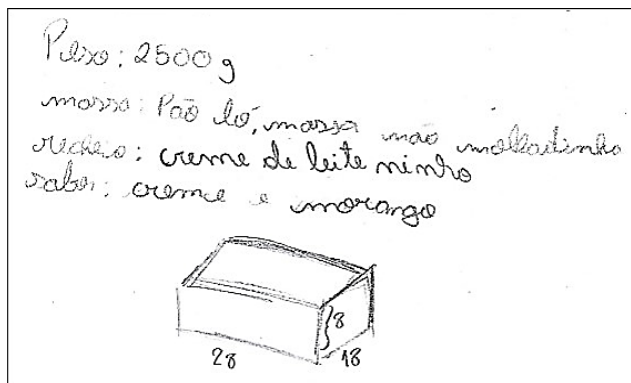 Peso: 2500g
massa: Pão ló, massa não molhadinha
recheio: creme de leite ninho
sabor: creme e morango
8
28
18